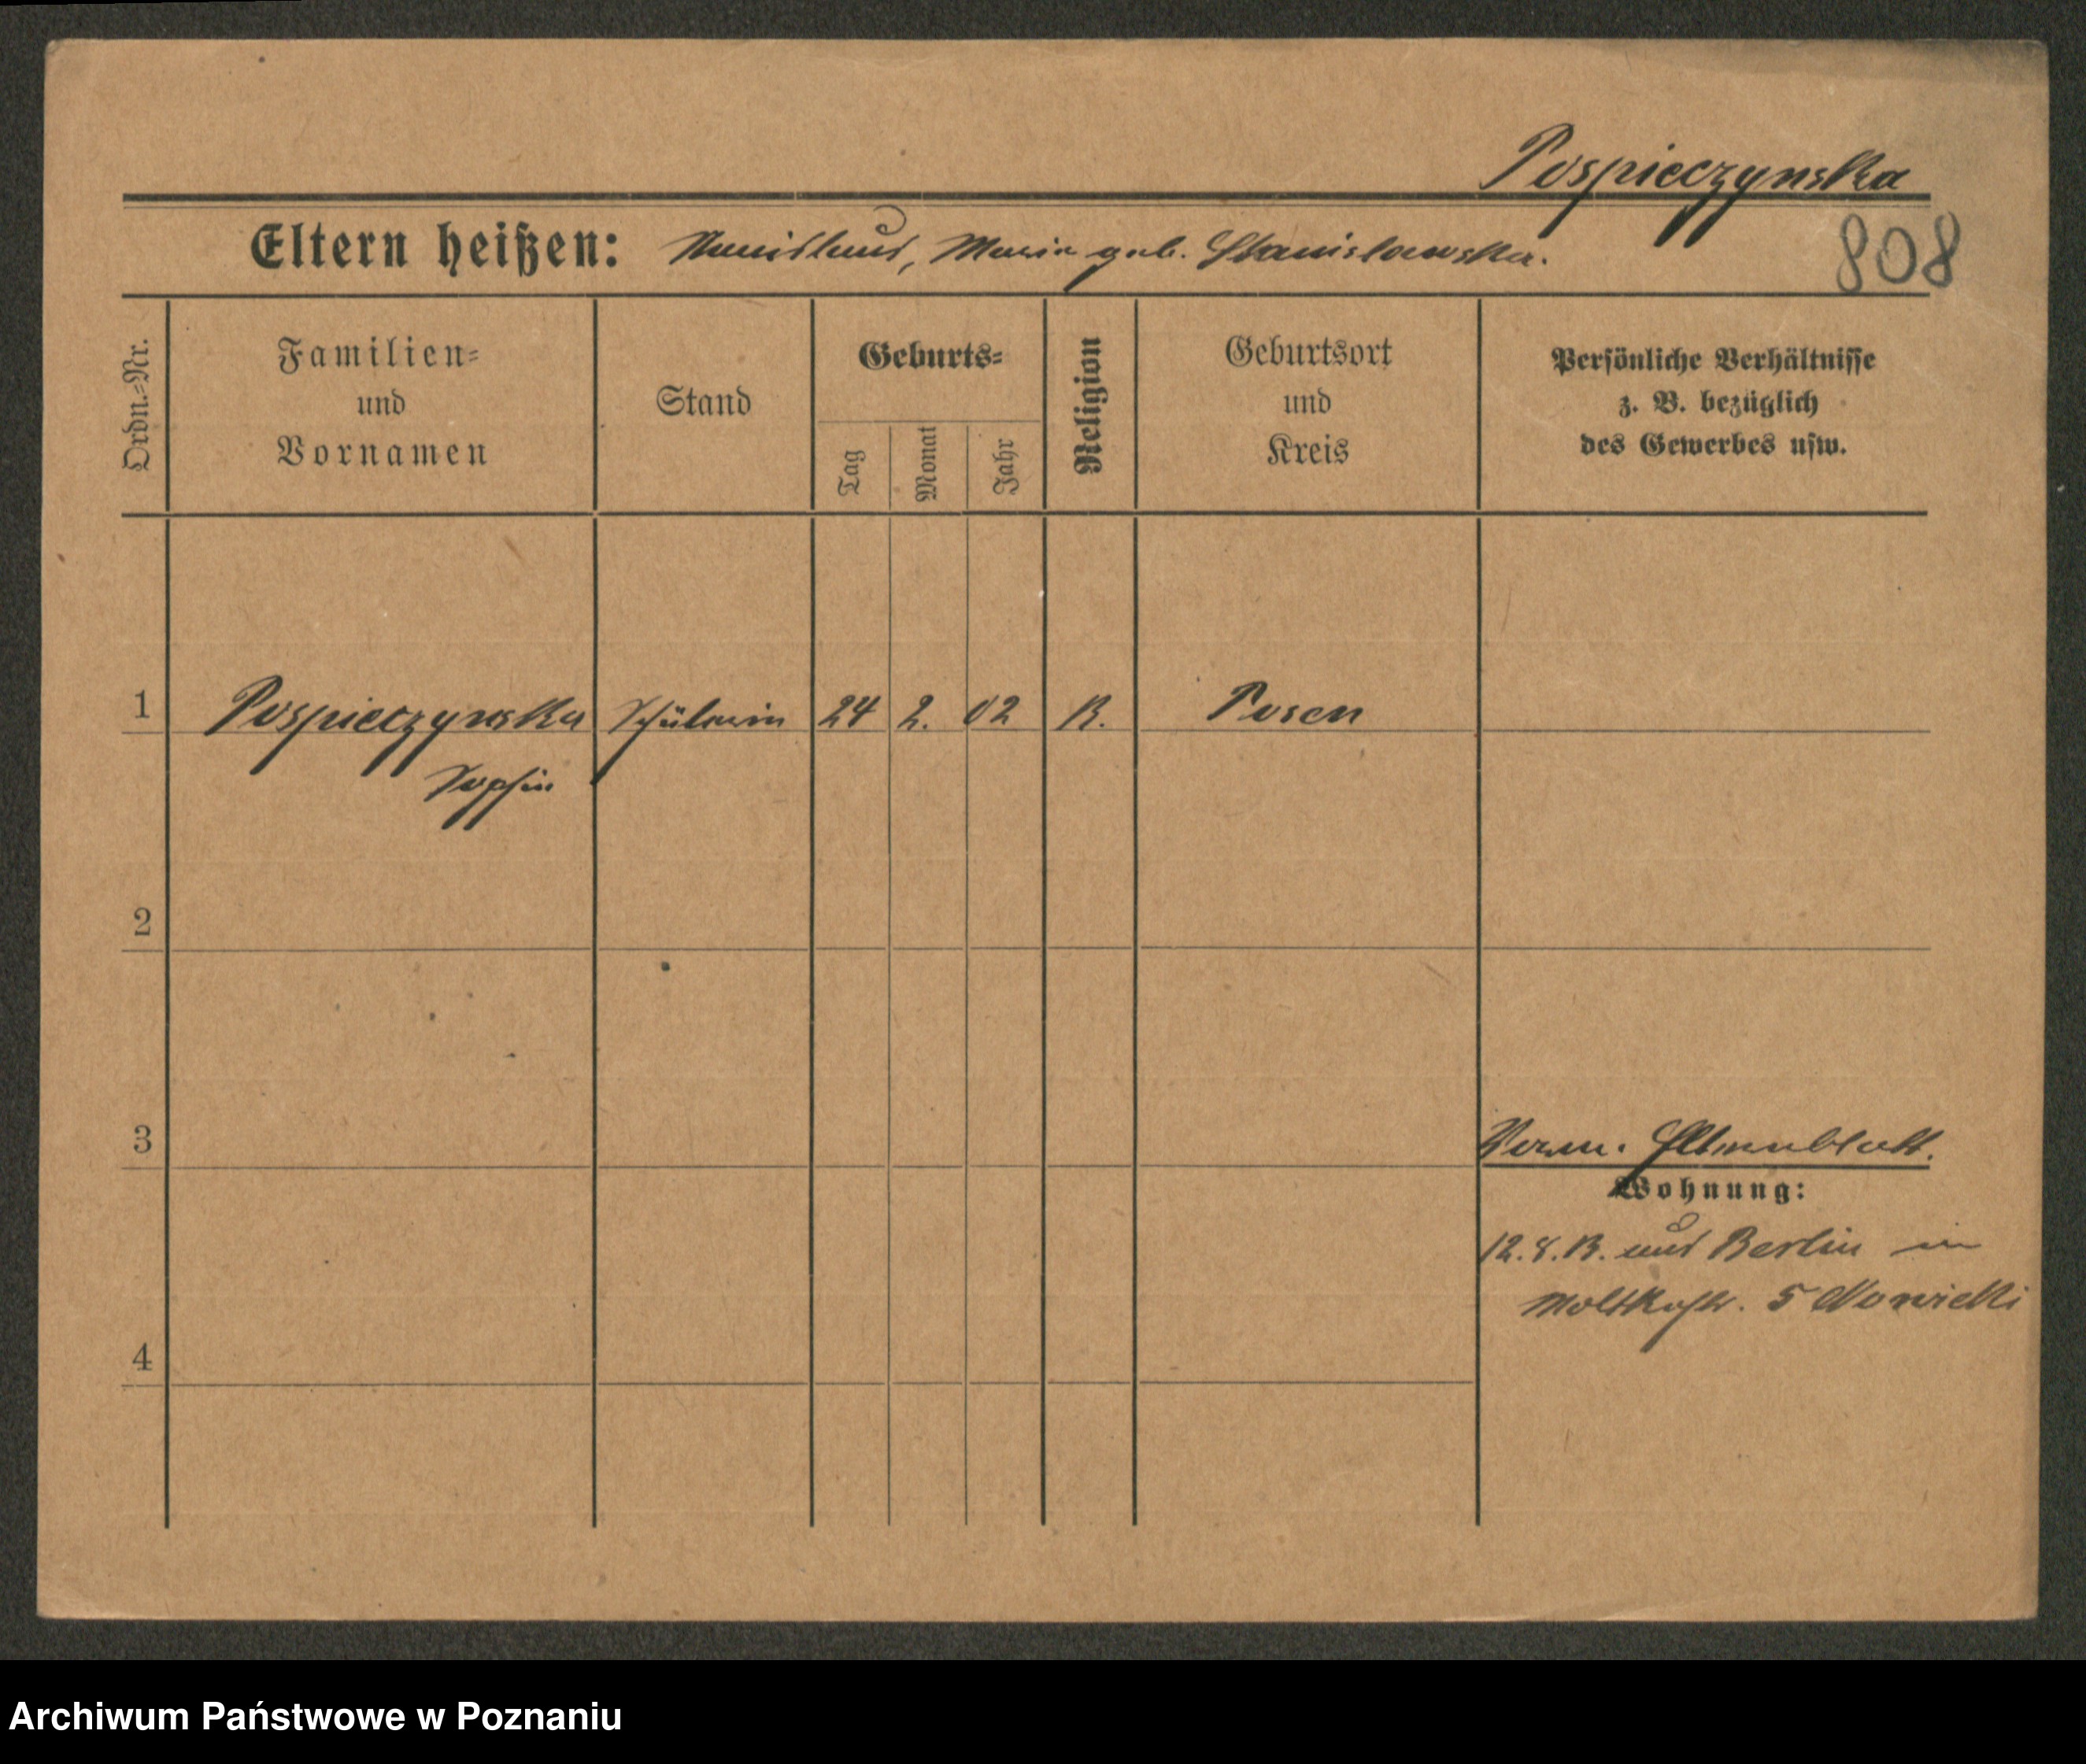 Pospieczynska
808
Eltern heißen: Stanislaus, Maria geb. Stanislawska.
Ordn.=Nr.
Familien=
und
Vornamen
Stand
Geburts=
Tag
Monat
Jahr
Religion
Geburtsort
und
Kreis
Persönliche Verhältnisse
z. B. bezüglich
des Gewerbes usw.
1 Pospieczynska Schülerin 24 2. 02 K. Posen
Sophie
2
3
Verm. Elternblatt.
Wohnung:
12.8. Berlin in
Moltkestr. 5 Nowicki
4
Archiwum Państwowe w Poznaniu